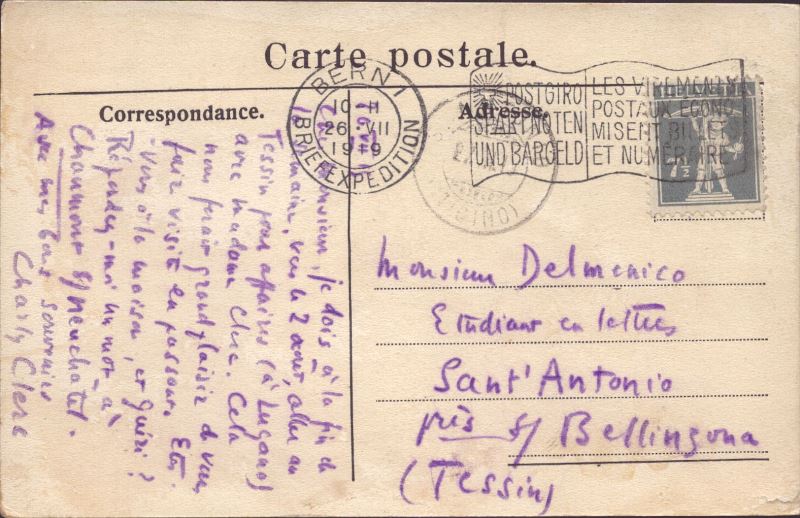 Carte postale.
Correspondance.
Adresse.
BERN 1
10 - 11
26. VII
1919
BRIEFEXPEDITION
POSTGIRO
SPART NOTEN
UND BARGELD
LES VIREMENTS
POSTAUX ECONO
MISENT BILLETS
ET NUMÉRAIRE
7½
(TICINO)
Monsieur, je dois à la fin de
semaine, vers le 2 août, aller au
Tessin pour affaires (à Lugano)
avec Madame Clerc. Cela
nous ferait grand plaisir de vous
faire visite en passant. Etes
-vous à la maison, et guéri?
Répondez-moi un mot à
Chaumont s/Neuchâtel.
Avec mes bons souvenirs
Charly Clerc
Monsieur Delmenico
Etudiant en lettres
Sant'Antonio
près s/ Bellinzona
(Tessin)